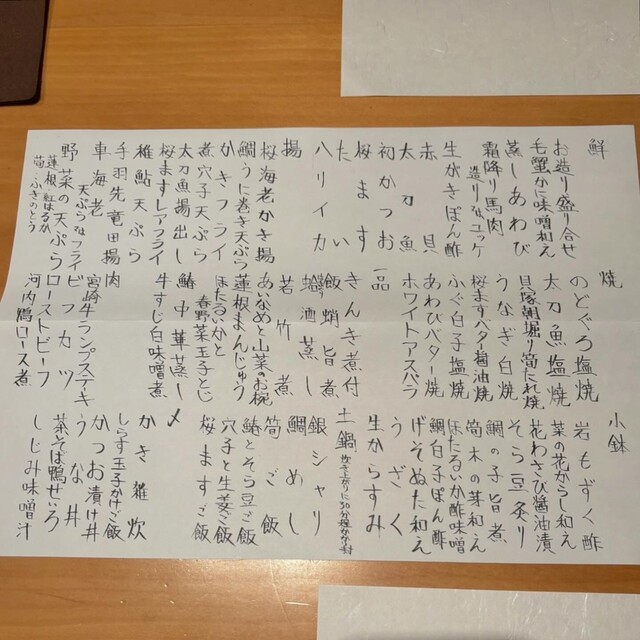 鮮
お造り盛り合せ
毛蟹かに味噌和え
蒸しあわび
霜降り馬肉
造りなユッケ
生がきぽん酢
赤貝
太刀魚
初かつお
桜ます
たい
ハリイカ
揚
桜海老かき揚
鯛うに巻き天ぷら
かきフライ
煮穴子天ぷら
太刀魚揚出し
桜ますレアフライ
稚鮎天ぷら
手羽先竜田揚
車海老
天ぷらなフライ
野菜の天ぷら
蓮根 紅はるか
筍 ふきのとう
焼
のどぐろ塩焼
太刀魚塩焼
貝塚朝堀り筍たれ焼
うなぎ白焼
桜ますバター醤油焼
ふぐ白子塩焼
あわびバター焼
ホワイトアスパラ
一品
きんき煮付
飯蛸旨煮
蛤酒蒸し
若竹煮
あいなめと山菜のお椀
蓮根まんじゅう
ほたるいかと
春野菜玉子とじ
鰆中華蒸し
牛すじ白味噌煮
肉
宮崎牛ランプステーキ
ビフカツ
ローストビーフ
河内鴨ロース煮
小鉢
岩もずく酢
菜の花からし和え
花わさび醤油漬
そら豆炙り
鯛の子旨煮
筍木の芽和え
ほたるいか酢味噌
鯛白子ぽん酢
げそぬた和え
うざく
生からすみ
土鍋 炊き上がりに30分程かかります
銀シャリ
鯛めし
筍ご飯
鰆とそら豆ご飯
穴子と生姜ご飯
桜ますご飯
〆
かき雑炊
しらす玉子かけご飯
かつお漬け丼
うな丼
茶そば鴨せいろ
しじみ味噌汁